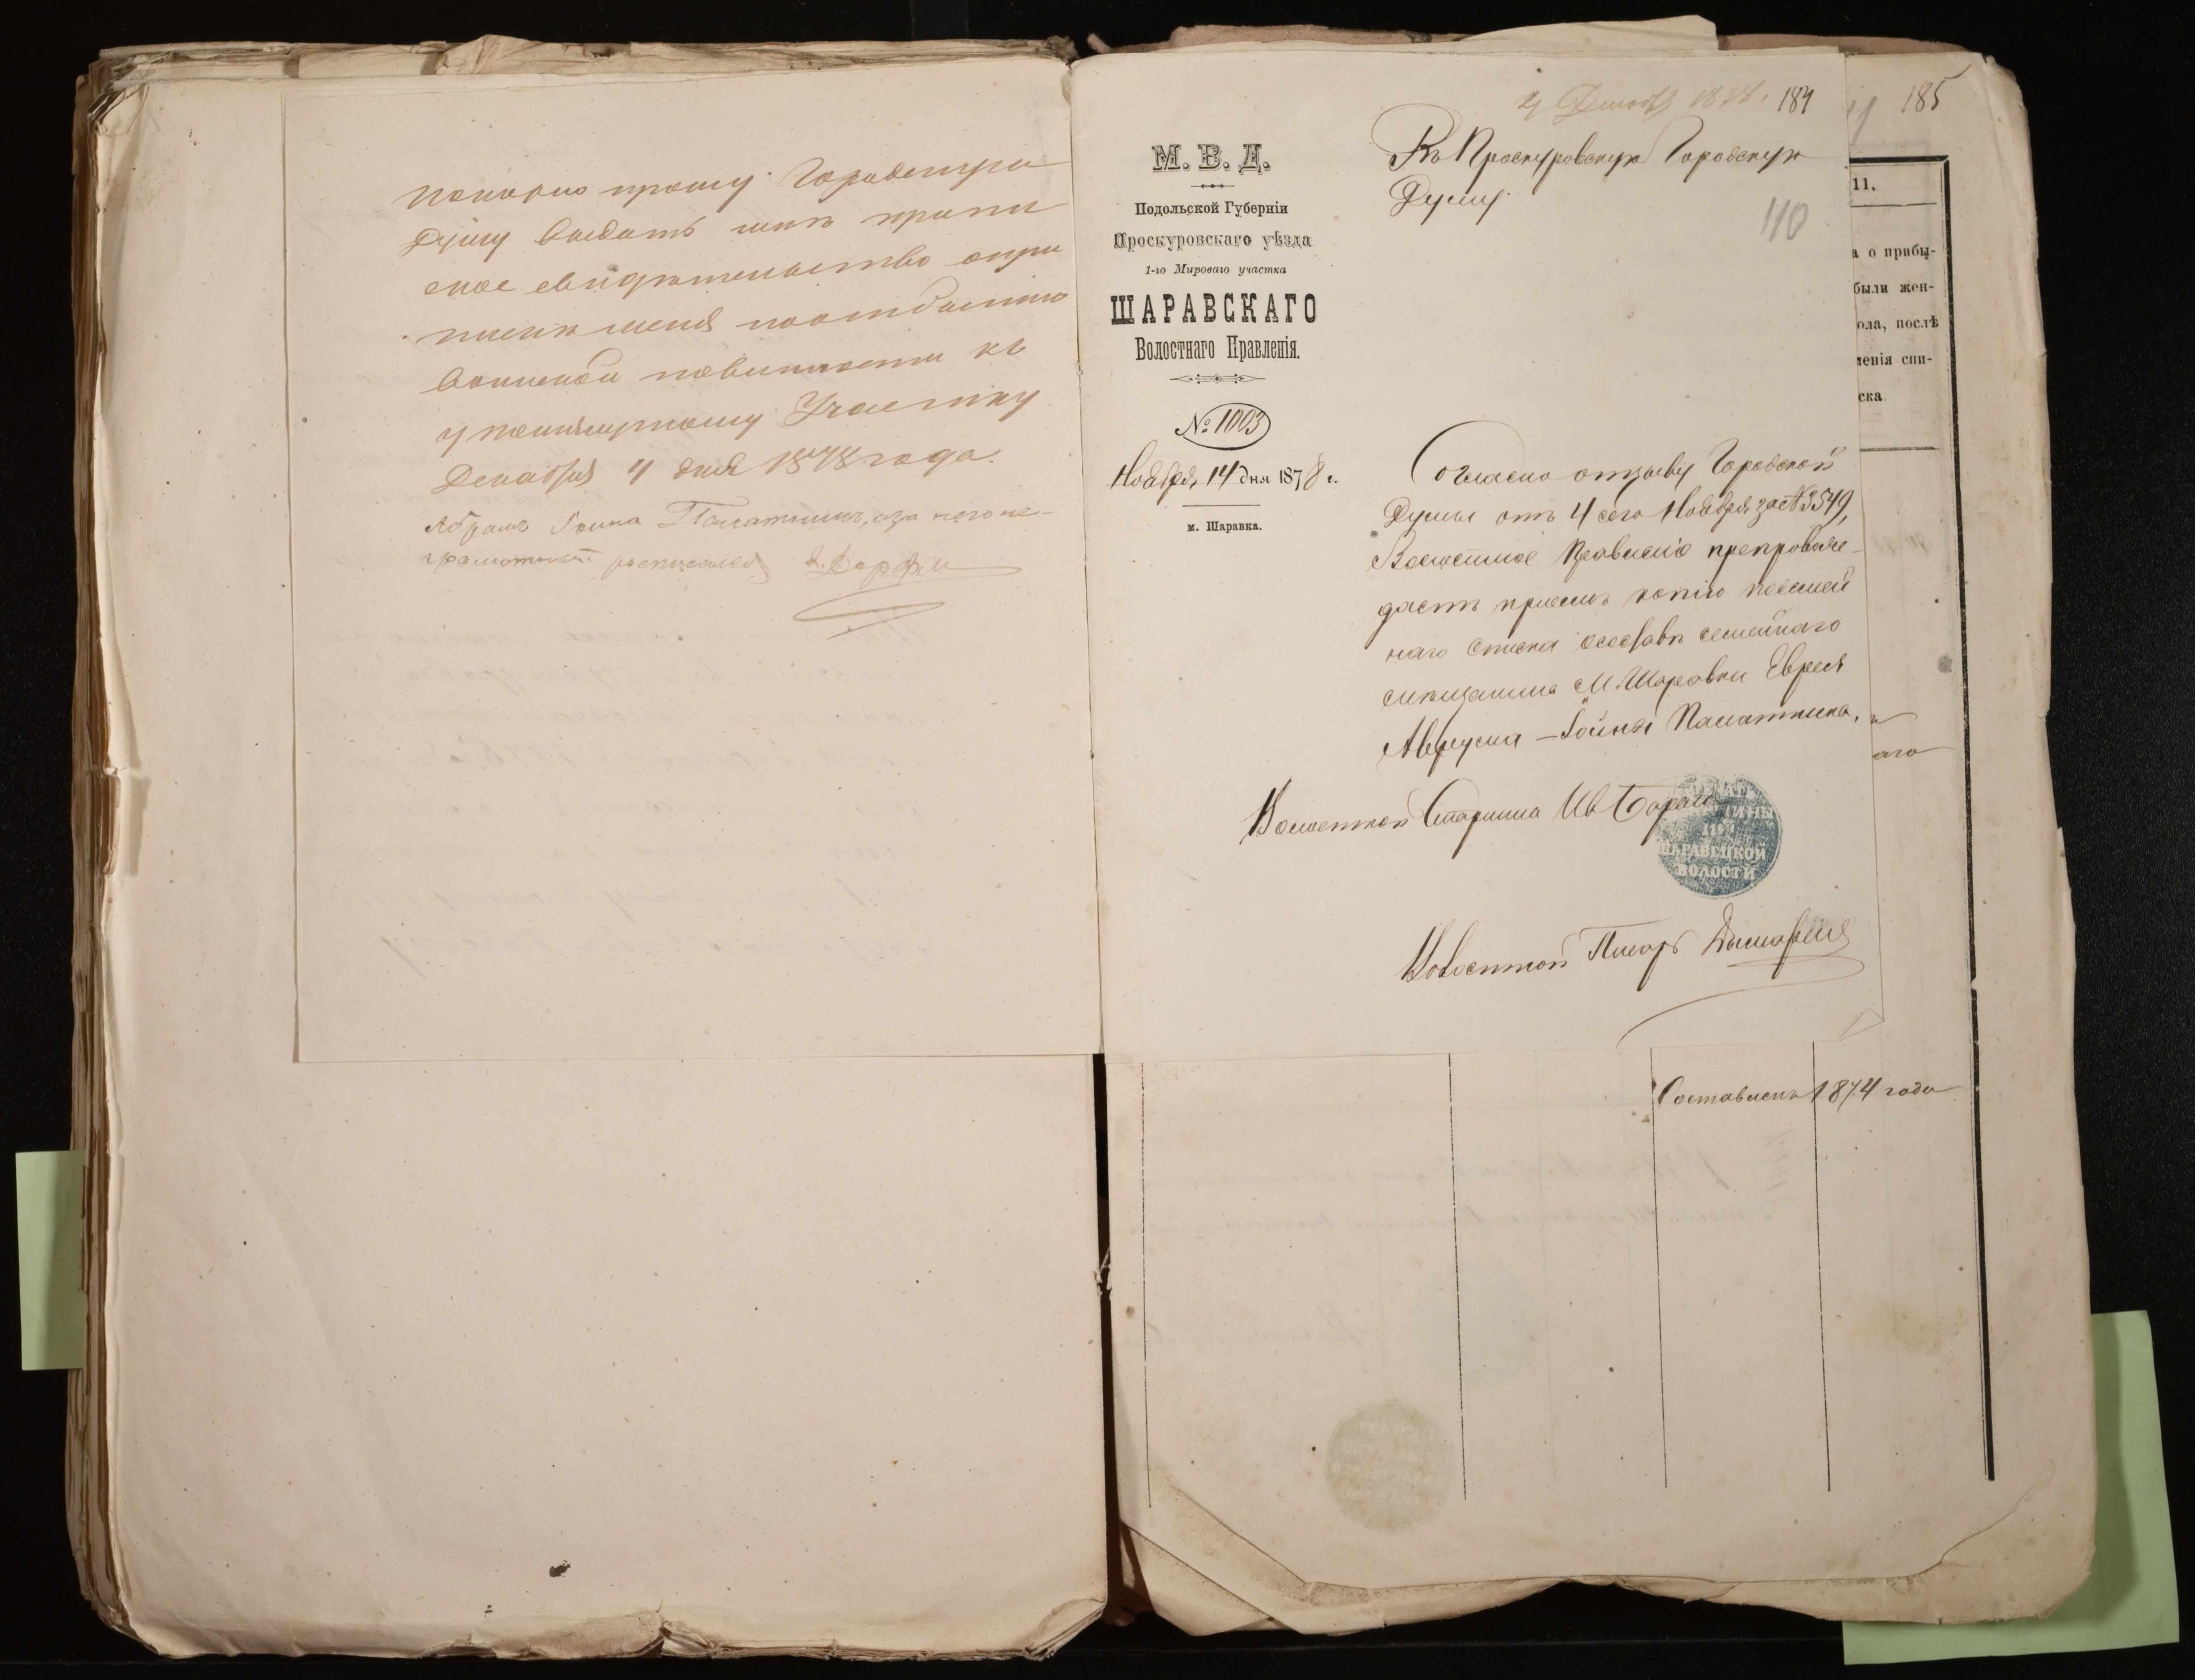 покорно прошу Городскую
Думу выдать мнѣ припи
сное свидѣтельство о при
пискѣ меня по отбытию
воинской повинности къ
упомянутому Участку
Декабря 4 дня 1878 года.
Абрамъ Гоина Палатникъ, а за него не-
грамотнаго росписался
4 Декабря 1878. 184
185
М. В. Д.
Подольской Губерніи
Проскуровскаго уѣзда
1-го Мироваго участка
ШАРАВСКАГО
Волостнаго Правленія.
№ 1003
Ноября 14 дня 1878 г.
м. Шаравка.
Въ Проскуровскую Городскую
Думу
110
Согласно отзыву Городской
Думы отъ 4 сего Ноября за № 3549,
Волостное Правленіе препровож-
даетъ присемъ копію посемей
наго списка о составѣ семейнаго
мѣщанина М. Шаровки Еврея
Аврума-Гойны Палатника.
Волостной Старшина
ПЕЧАТЬ
СТАРШИНЫ
ШАРАВЕЦКОЙ
ВОЛОСТИ
Волостной Писарь
11.
а о прибы-
были жен-
ола, послѣ
ленія спи-
ска
аго
Составленъ 1874 года